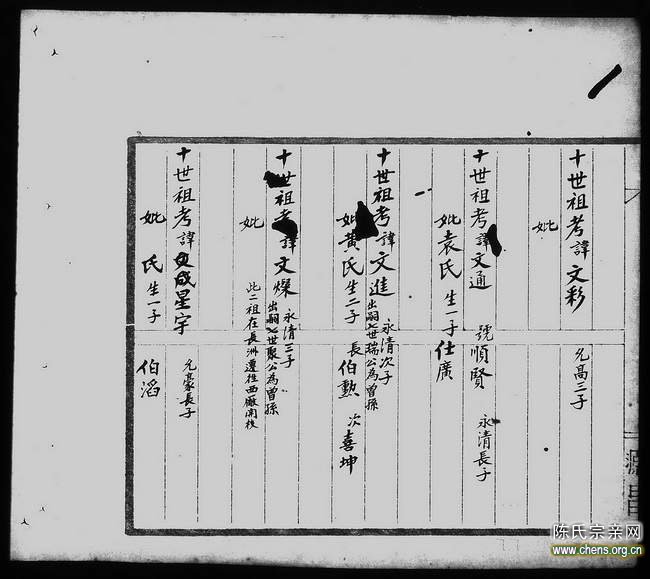 十世祖考諱文彩 允高三子
妣
十世祖考諱文通 號順賢 永清長子
妣袁氏生一子仕廣
十世祖考諱文進 永清次子
出嗣七世瑞公為曾孫
妣黃氏生二子 長伯勲 次喜坤
十世祖考諱文燦 永清三子
出嗣七世聚公為曾孫
妣
此二祖在長洲遷往西廠開枝
十世祖考諱文成星宇 允豪長子
妣 氏生一子 伯滔
源昌
陈氏宗亲网
www.chens.org.cn